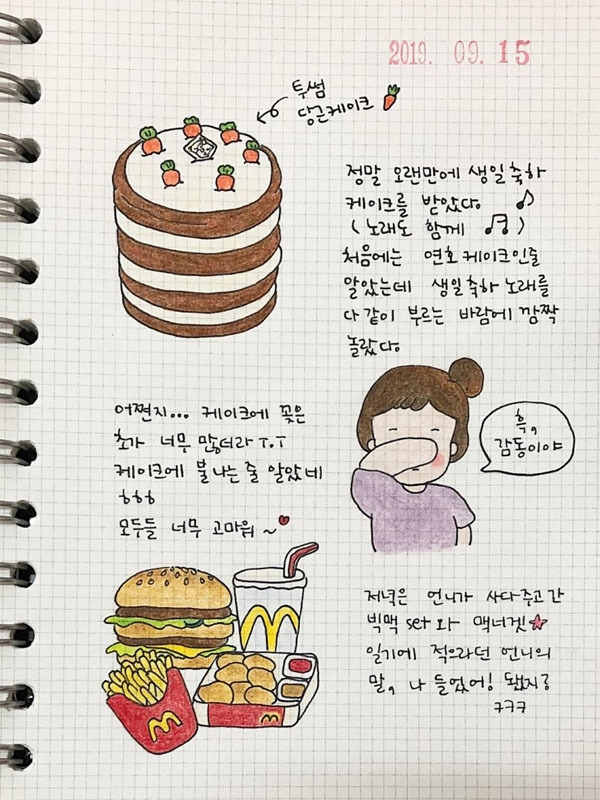 2019. 09. 15
투썸
당근케이크
정말 오랜만에 생일축하
케이크를 받았다.
(노래도 함께 ♬)
처음에는 연호 케이크인줄
알았는데 생일축하 노래를
다같이 부르는 바람에 깜짝
놀랐다.
어쩐지... 케이크에 꽂은
초가 너무 많더라 T.T
케이크에 불나는 줄 알았네
ㅎㅎㅎ
모두들 너무 고마워~
흑,
감동이야
저녁은 언니가 사다주고간
빅맥 set와 맥너겟☆
일기에 적으라던 언니의
말, 나 들었어! 됐지?
ㅋㅋㅋ